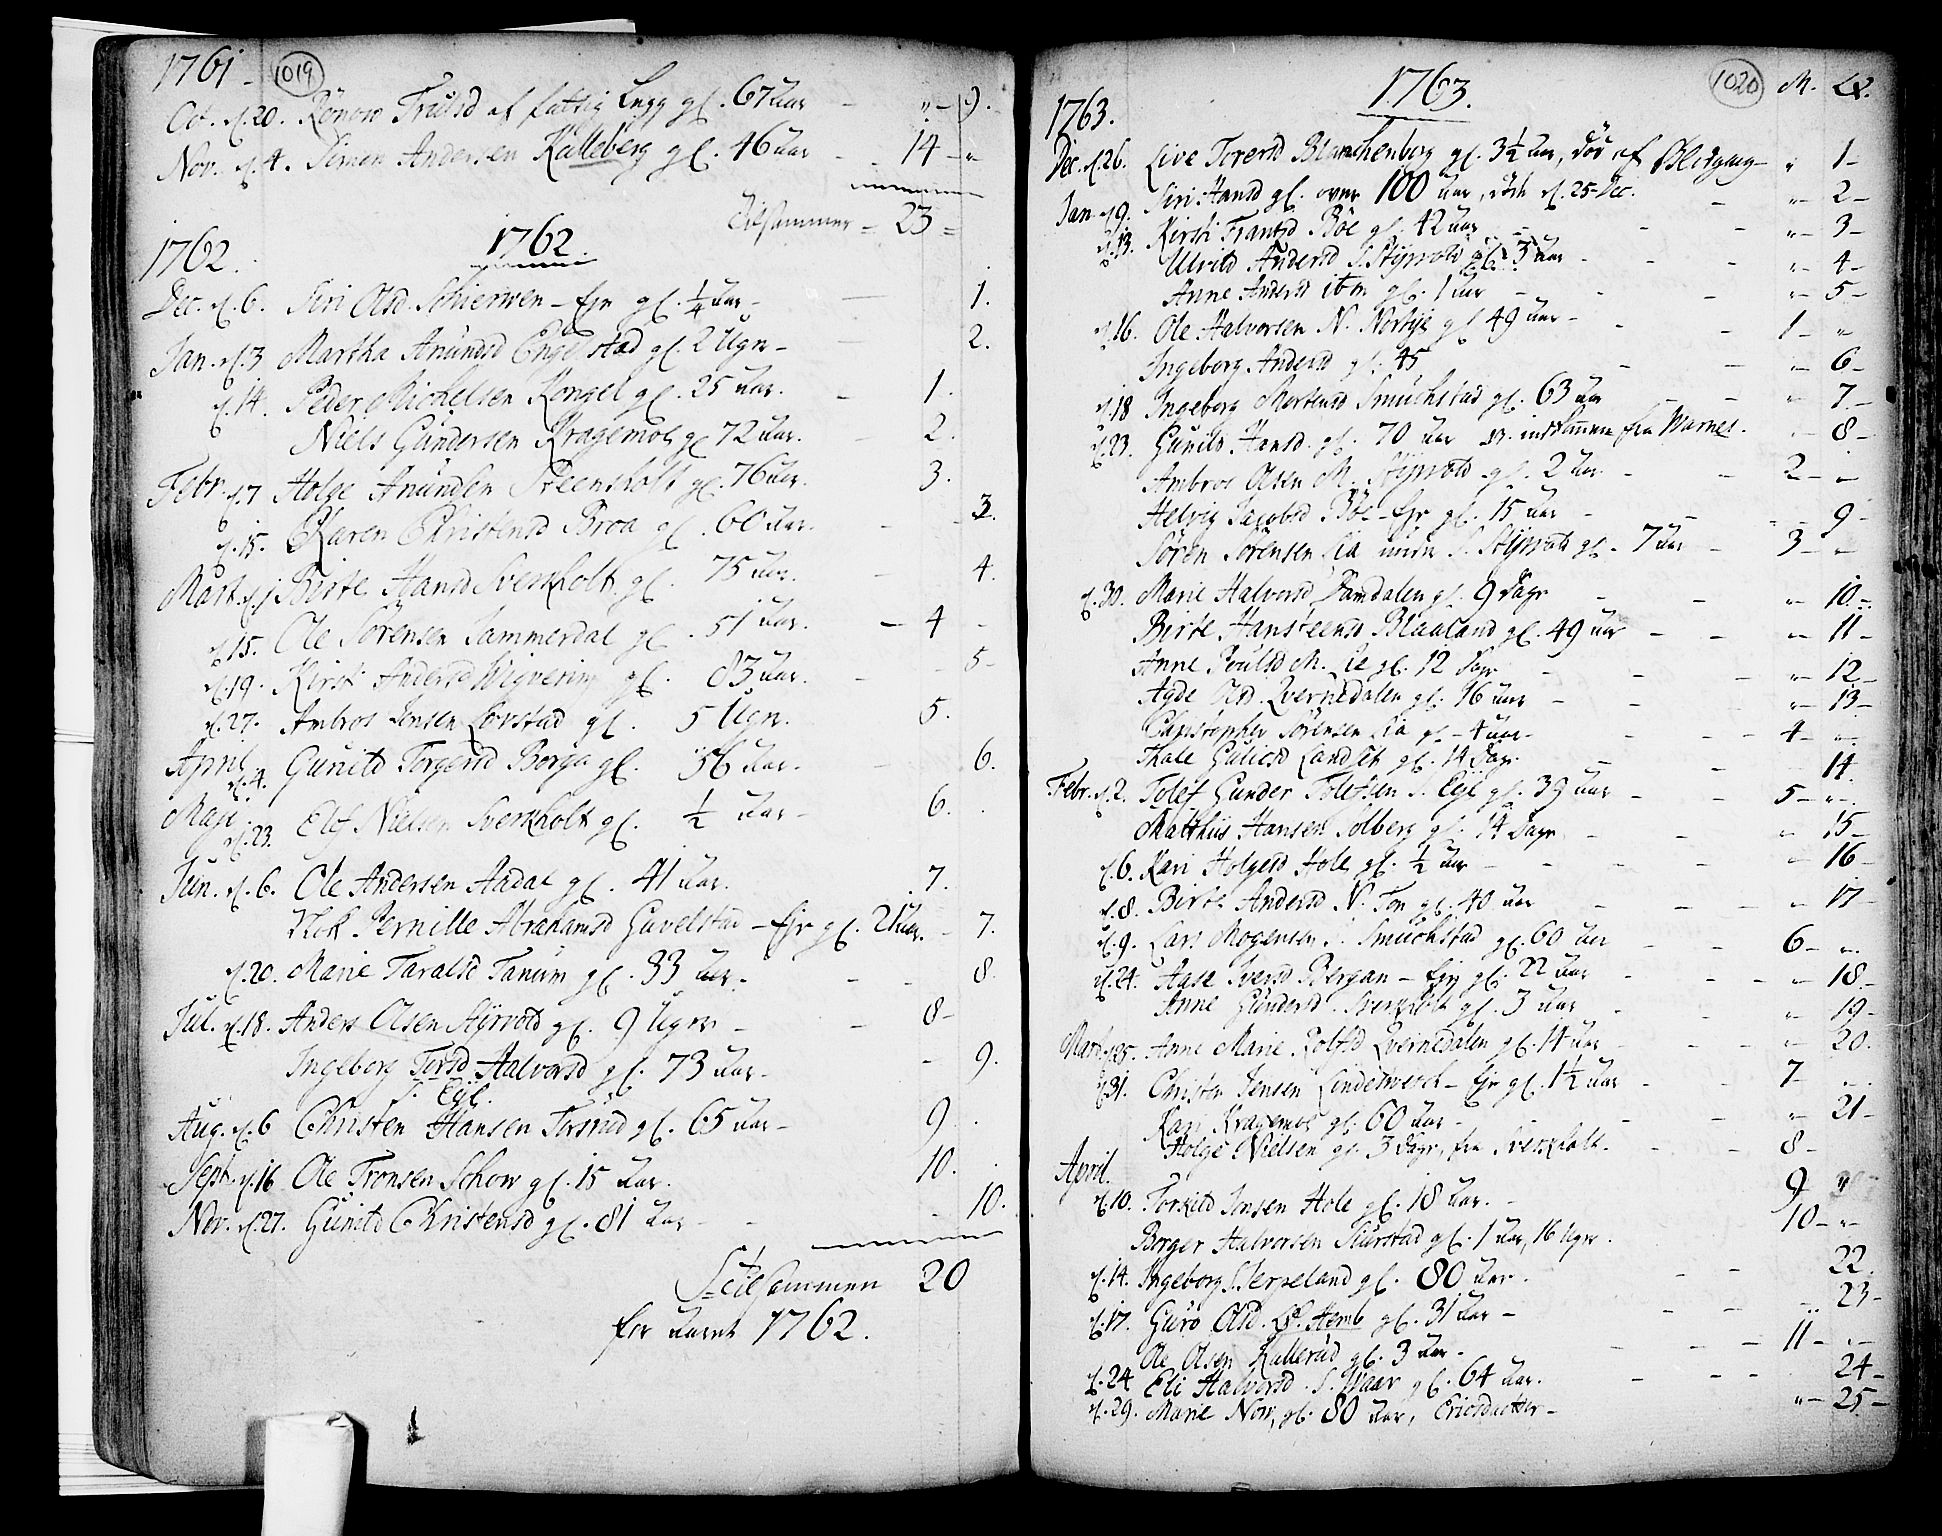 1761 1019
Oct. d. 20. Rønow Trulsd af fattig Lægg gl. 67 aar - " - 9.
Nov. d. 4. Simen Andersen Kalleberg gl. 46 aar - 14 - "
Tilsammen - 23 =
1762. 1762
Dec. d. 6. Siri Olsd. - Eje gl. 1/4 aar - 1.
Jan. d. 3 Martha Anundsd Engelstad gl. 2 Ugr - 2.
d. 14. Peder Michelsen Kongel gl. 25 aar. - 1.
Niels Gundersen Kragemoe gl 72 aar. - 2.
Febr. d. 7 Holge Anundsen gl. 76 aar. 3.
d. 15. Karen Christensd Broa gl. 60 aar. - 3.
Mart. d. 1 Birte Hansd Sverkholt gl. 75 aar. - 4.
d. 15. Ole Sørensen Sammerdal gl. 51 aar. - 4 -
d. 19. Kirsti Andersd gl. 83 aar. - 5 -
d. 27. Ambros Jensen Lovstad gl. 5 Ugr. 5.
April d. 4. Gunild Torgersd Borga gl. 56 aar. - 6.
Maji d. 23. Elf Nielsen Sverkholt gl. 1/2 aar - 6.
Jun. d. 6. Ole Andersen Aadal gl. 41 aar. 7.
Nok Pernille Abrahamsd Guvelstad - Eje gl. 21 aar. - 7.
d. 20. Marie Taralsd Tanum gl. 33 aar. - 8.
Jul. d. 18. Anders Olsen Styrvold gl. 9 Ugr - 8 -
Ingeborg Torsd Halvorsd gl. 73 aar - 9.
S. Eje.
Aug. d. 6 Christen Hansen Torsrud gl. 65 aar - 9.
Sept. d. 16 Ole Tronsen Schow gl. 15 aar. 10.
Nov. d. 27. Gunild Christensd gl. 81 aar - 10.
Tilsammen 20
for aaret 1762.
1763. 1020 M. Qv.
1763.
Dec. d. 26. Live Torersd Blanchenborg gl. 3 1/2 aar, død af Blodgang - " 1 -
Jan. d. 9. Siri Hansd gl. over 100 aar, døde d. 25 Dec. - " - 2 -
d. 13. Kirsti Frantsd Bøe gl. 42 aar - " - 3 -
Ulvild Andersd S. Styrvold gl. 3 aar - " - 4 -
Anne Andersd ibm gl. 1 aar - " - 5 -
d. 16. Ole Halvorsen N. gl 49 aar - 1 - "
Ingeborg Andersd gl. 45 - " - 6 -
d. 18 Ingeborg Mortensd Smuchstad gl. 63 aar - " 7 -
d. 23. Gunild Hansd. gl. 70 aar indkommen fra Warnes. - 8 -
Ambros Olsen M. Styrvold gl. 2 aar. - 2 - "
Helvig Jacobsd Bøe - Eje gl. 15 aar - 9 -
Søren Sørensen Lia S. Styrvold gl. 7 aar - 3 - "
d. 30. Marie Halvorsd Damdalen gl. 9 dage - " - 10 -
Birte Hansteensd Blaaland gl. 49 aar - " - 11 -
Anne Poulsd M. Lie gl. 12 dage - " - 12 -
Aase Olsd. Qvernedalen gl. 16 aar - " - 13 -
Christopher Sørensen Lia gl - 4 aar - 4 - "
Thale Gulicsd gl. 14 dage. - 14.
Febr. d. 2. Tolef Gunder Tolefsen S. Eje gl. 39 aar - 5 - "
Matthis Hansen Solberg gl. 14 dage - " 15 -
d. 6. Kari Holgersd Hole gl. 1/2 aar - " - 16 -
d. 8. Birte Andersd N. Ton gl. 40 aar - " 17 -
d. 9. Lars Mogensen S. Smuchstad gl. 60 aar - 6 - "
d. 24. Aase Iversd Bergan - Eje gl. 22 aar - " 18 -
Anne Gundersd Sverkholt gl. 3 aar - " 19 -
Mart. d. 25. Anne Marie Rolfsd Qvernedalen gl. 14 aar - " 20.
d. 31. Christen Jensen - Eje gl. 1 1/2 aar - 7 - "
Kari Kragemoe gl. 60 aar - " 21 -
Holge Nielsen gl. 3 dage, fra Sverkholt. - 8 -
April.
d. 10. Torkild Jensen Hole gl. 18 aar. - 9 "
Borger Halvorsen gl. 1 aar, 16 Ugr. 10 - "
d. 14. Ingeborg S. Jerpeland gl. 80 aar. - 22.
d. 17. Guro Olsd. Hemb gl. 31 aar - 23 -
Ole Olsen Kallerud gl. 3 aar - 11 - "
d. 24. Eli Halvorsd S. Waar gl. 64 aar. - 24 -
d. 29. Marie Now, gl. 80 aar, Ericsdatter - " - 25 -